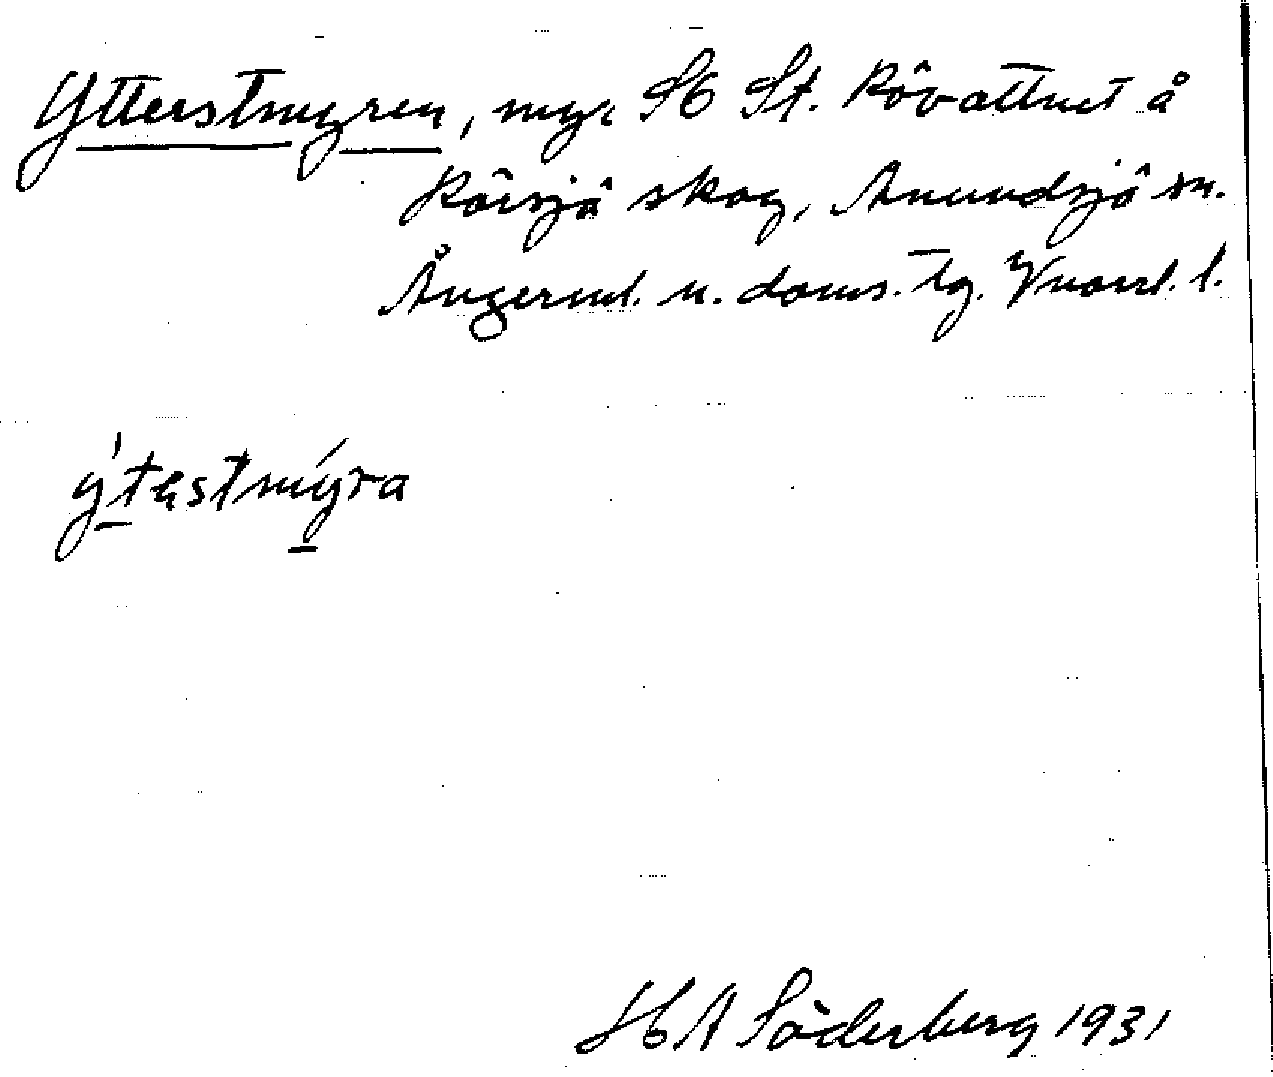 Ytterstmyren, myr SÖ St. Rövattnet å
Rörsjö skog, Anundsjö sn.
Ångerml. n. doms. tg. Vnorrl. l.
ýtestmýra
HA Söderberg 1931